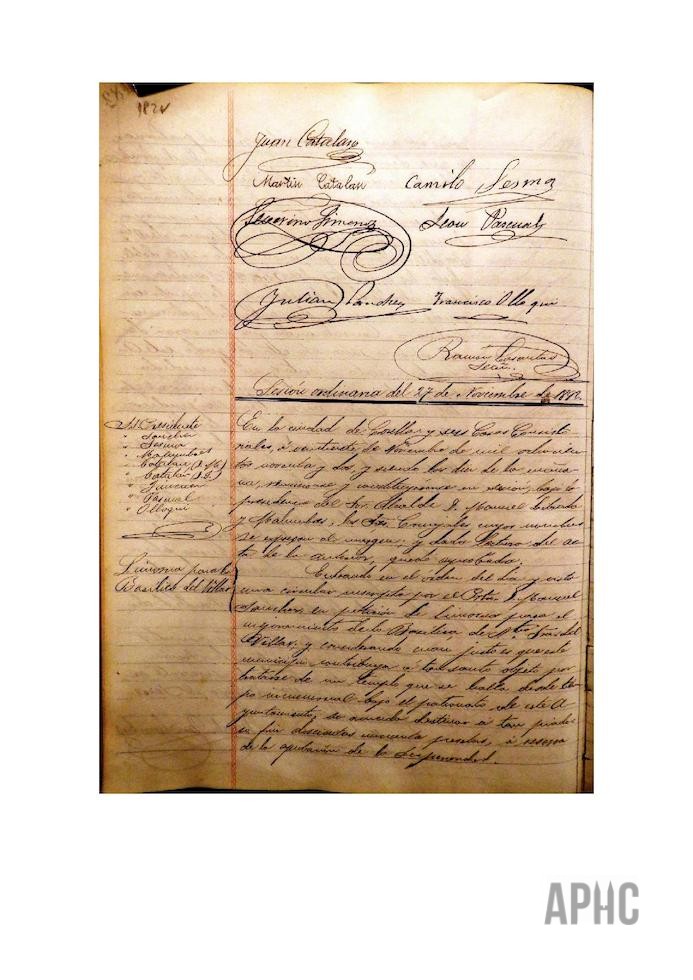 1892
Juan Catalan
Martin Catalan Camilo Sesma
Severino Jimenez Leon Pascual
Julian Sanchez Francisco Olloqui
Ramon
Srio.
Sesión ordinaria del 27 de Noviembre de 1892.
Sr. Presidente
" Sanchez
" Sesma
" Catalan (J.)
" Jimenez
" Pascual
" Olloqui
Limosna para la
Basilica del Villar
En la ciudad de Corella y sus Casas Consisto-
riales, á veintisiete de Noviembre de mil ochocien-
tos noventa y dos, y siendo las diez de la maña-
na, reunidos y constituyéronse en sesion, bajo la
presidencia del Sor. Alcalde D. Manuel
y Malumbres, los Sres. Concejales cuyos nombres
se expresan al margen; y dada lectura del ac-
ta de la anterior, quedó aprobada.
Entrando en el órden del dia y visto
una circular suscrita por el Pbro. D. Manuel
Sanchez, en peticion de limosna para el
mejoramiento de la Basilica de Ntra. Sra. del
Villar; y considerando cuan justo es que este
municipio contribuya á tan santo objeto por
tratarse de un templo que se halla desde tiem-
po inmemorial bajo el patronato de este A-
yuntamiento, se acuerda destinar a tan piado-
so fin doscientas cincuenta pesetas, á reserva
de la aprobación de la Superioridad.
APHC